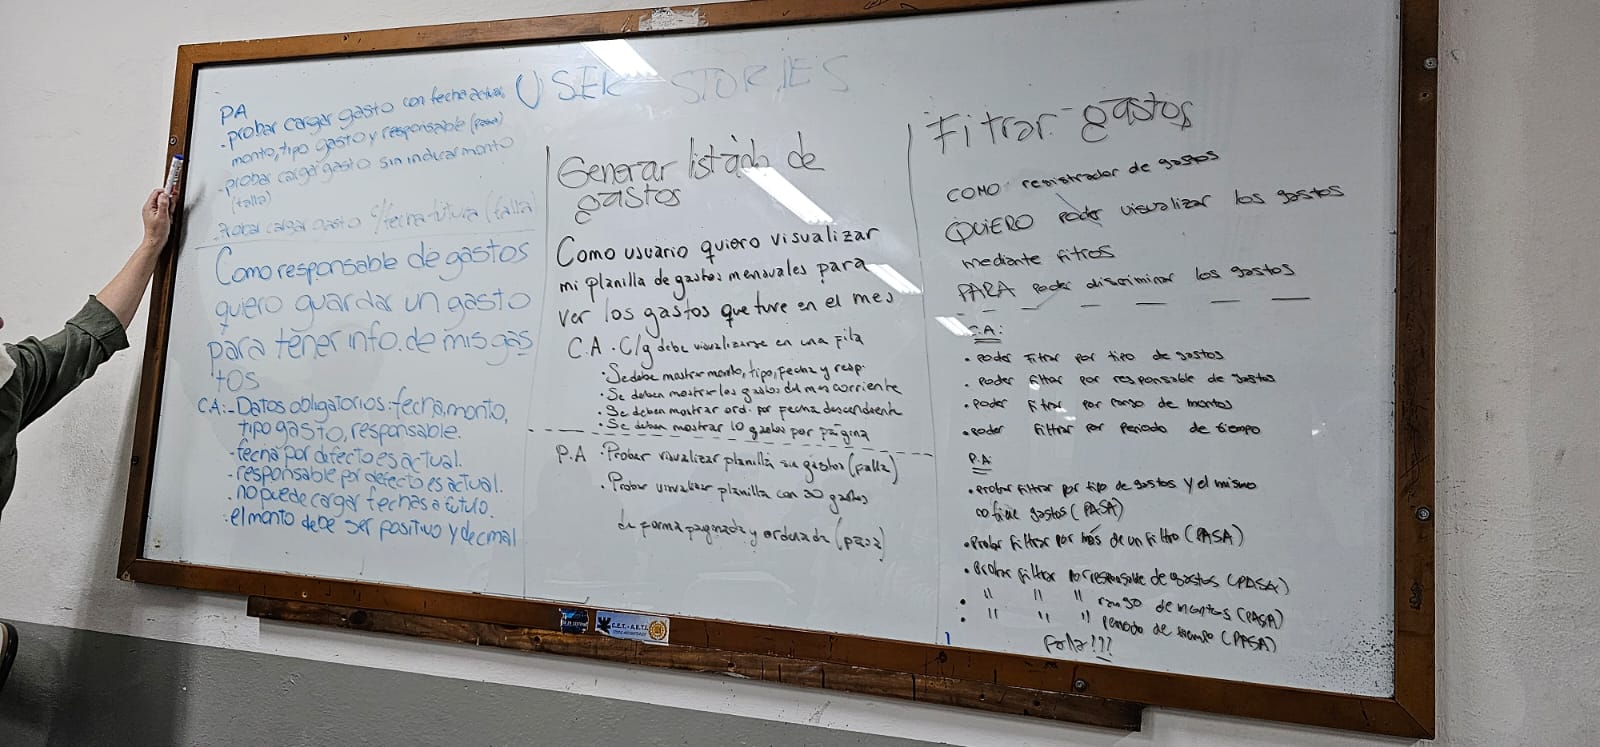 USER STORIES
PA
- probar cargar gasto con fecha actual,
monto, tipo gasto y responsable (pasa)
- probar cargar gasto sin indicar monto
(falla)
- Probar cargar gasto c/fecha futura (falla)
Como responsable de gastos
quiero guardar un gasto
para tener info. de mis gas
tos
C.A:- Datos obligatorios: fecha, monto,
tipo gasto, responsable.
- fecha por defecto es actual.
- responsable por defecto es actual.
- no puede cargar fechas a futuro.
- el monto debe ser positivo y decimal
Generar listado de
gastos
Como usuario quiero visualizar
mi planilla de gastos mensuales para
ver los gastos que tuve en el mes
C.A • C/g debe visualizarse en una fila
• Se debe mostrar monto, tipo, fecha y resp.
• Se deben mostrar los gastos del mes corriente
• Se deben mostrar ord. por fecha descendente
• Se deben mostrar 10 gastos por página
P.A • Probar visualizar planilla sin gastos (falla)
• Probar visualizar planilla con 30 gastos
de forma paginada y ordenada (pasa)
Fitrar gastos
COMO registrador de gastos
QUIERO poder visualizar los gastos
mediante fitros
PARA poder discriminar los gastos
C.A:
• poder fitrar por tipo de gastos
• poder filtrar por responsable de gastos
• poder filtrar por rango de montos
• poder filtrar por periodo de tiempo
P.A:
• Probar filtrar por tipo de gastos y el mismo
gastos (PASA)
• Probar filtrar por más de un filtro (PASA)
• Probar filtrar por responsable de gastos (PASA)
• " " " rango de montos (PASA)
• " " " periodo de tiempo (PASA)
Falla!??